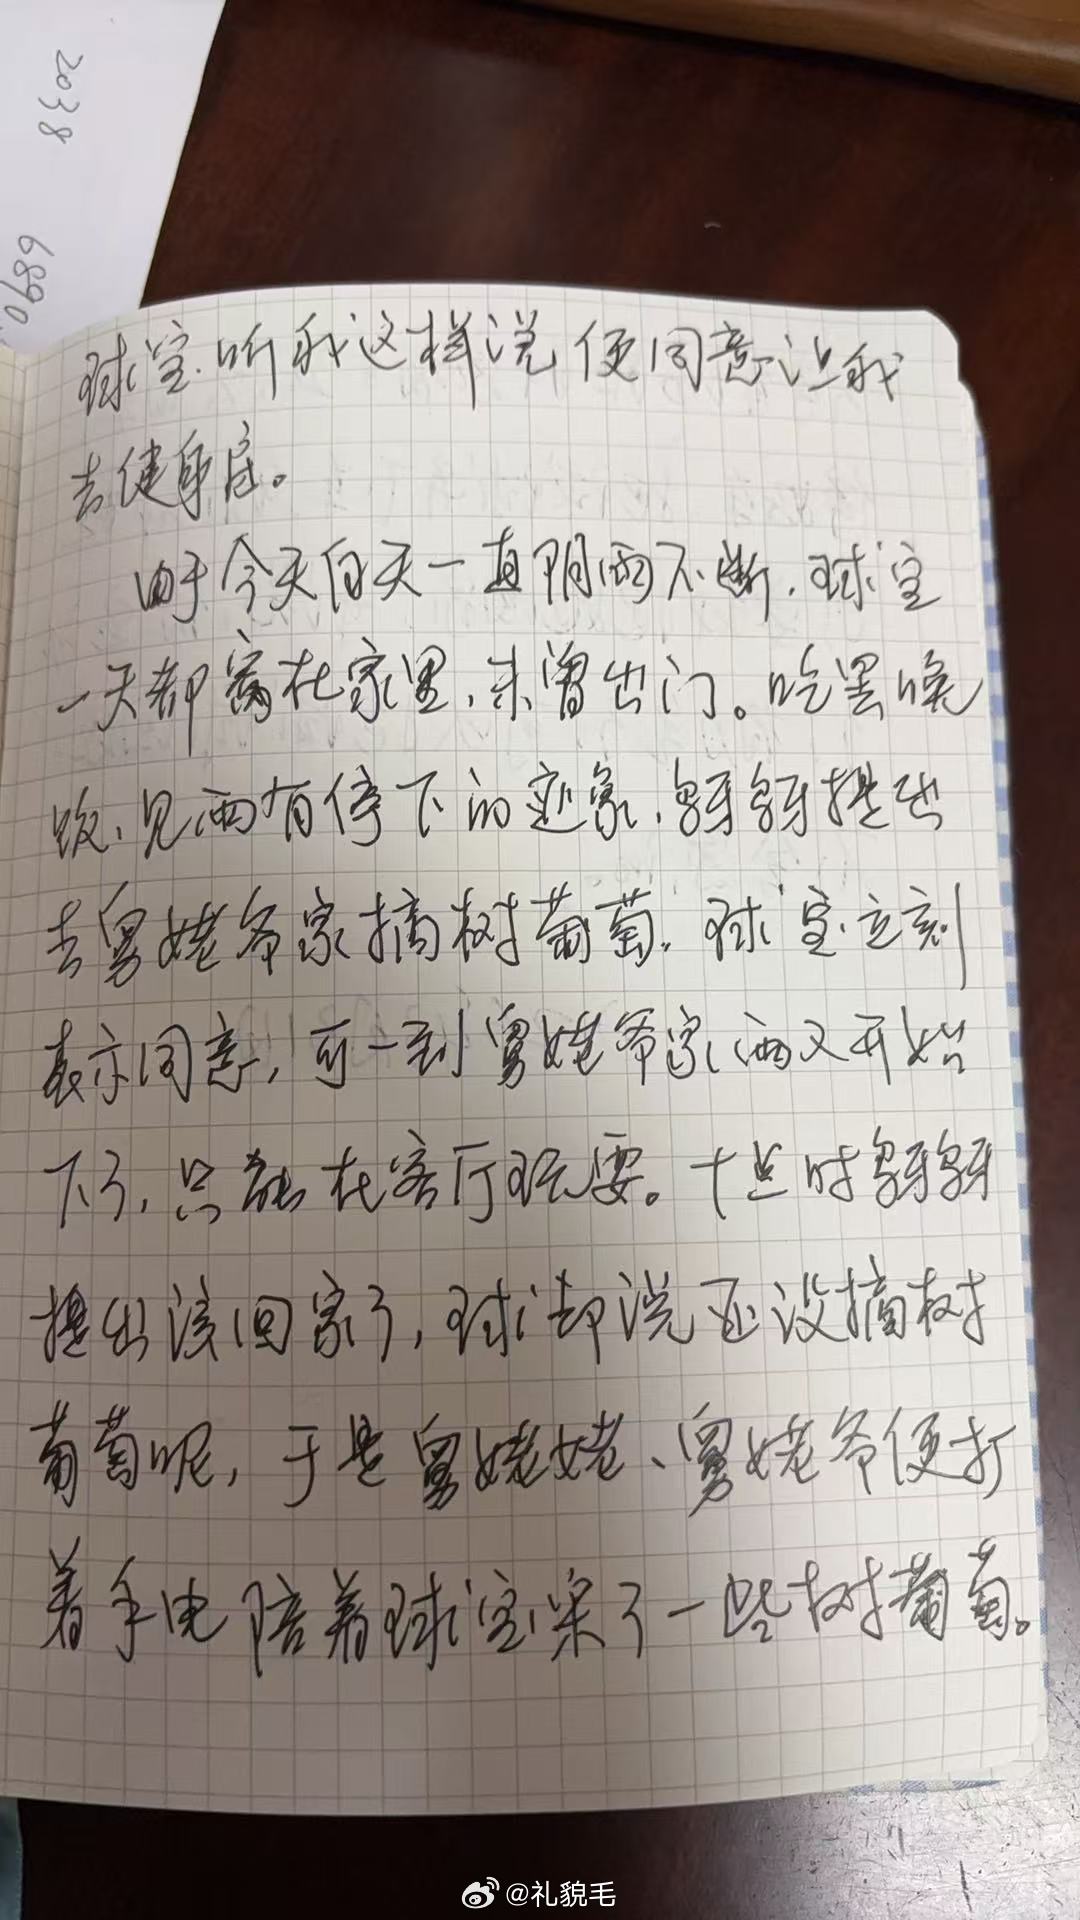 2038
6890
球宝听我这样说便同意让我
去健身房。
由于今天白天一直阴雨不断，球宝
一天都窝在家里，未曾出门。吃罢晚
饭，见雨有停下的迹象，舅舅提出
去舅姥爷家摘树葡萄，球宝立刻
表示同意，可一到舅姥爷家雨又开始
下了，只能在客厅玩耍。十点时
提出该回家了，球却说还没摘树
葡萄呢，于是舅姥姥、舅姥爷便打
着手电陪着球宝采了一些树葡萄。
@礼貌毛